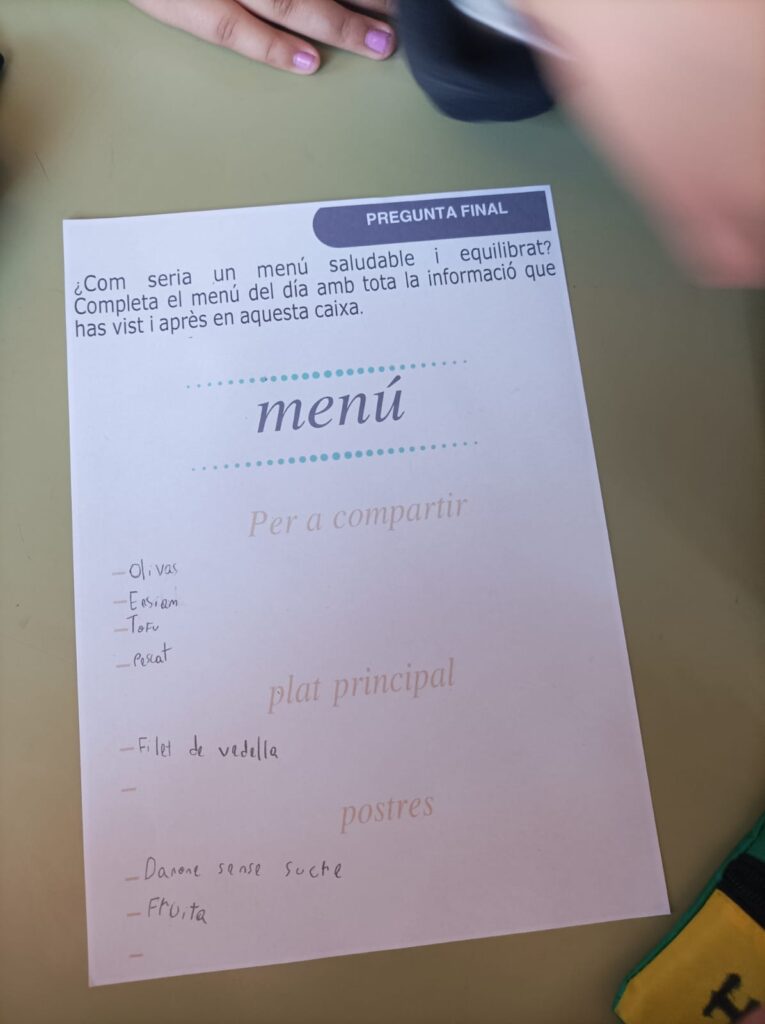 PREGUNTA FINAL
¿Com seria un menú saludable i equilibrat?
Completa el menú del día amb tota la informació que
has vist i après en aquesta caixa.
menú
Per a compartir
- Olivas
- Ensiam
- Tofu
- Pescat
plat principal
- Filet de vedella
-
postres
- Danone sense sucre
- Fruita
-